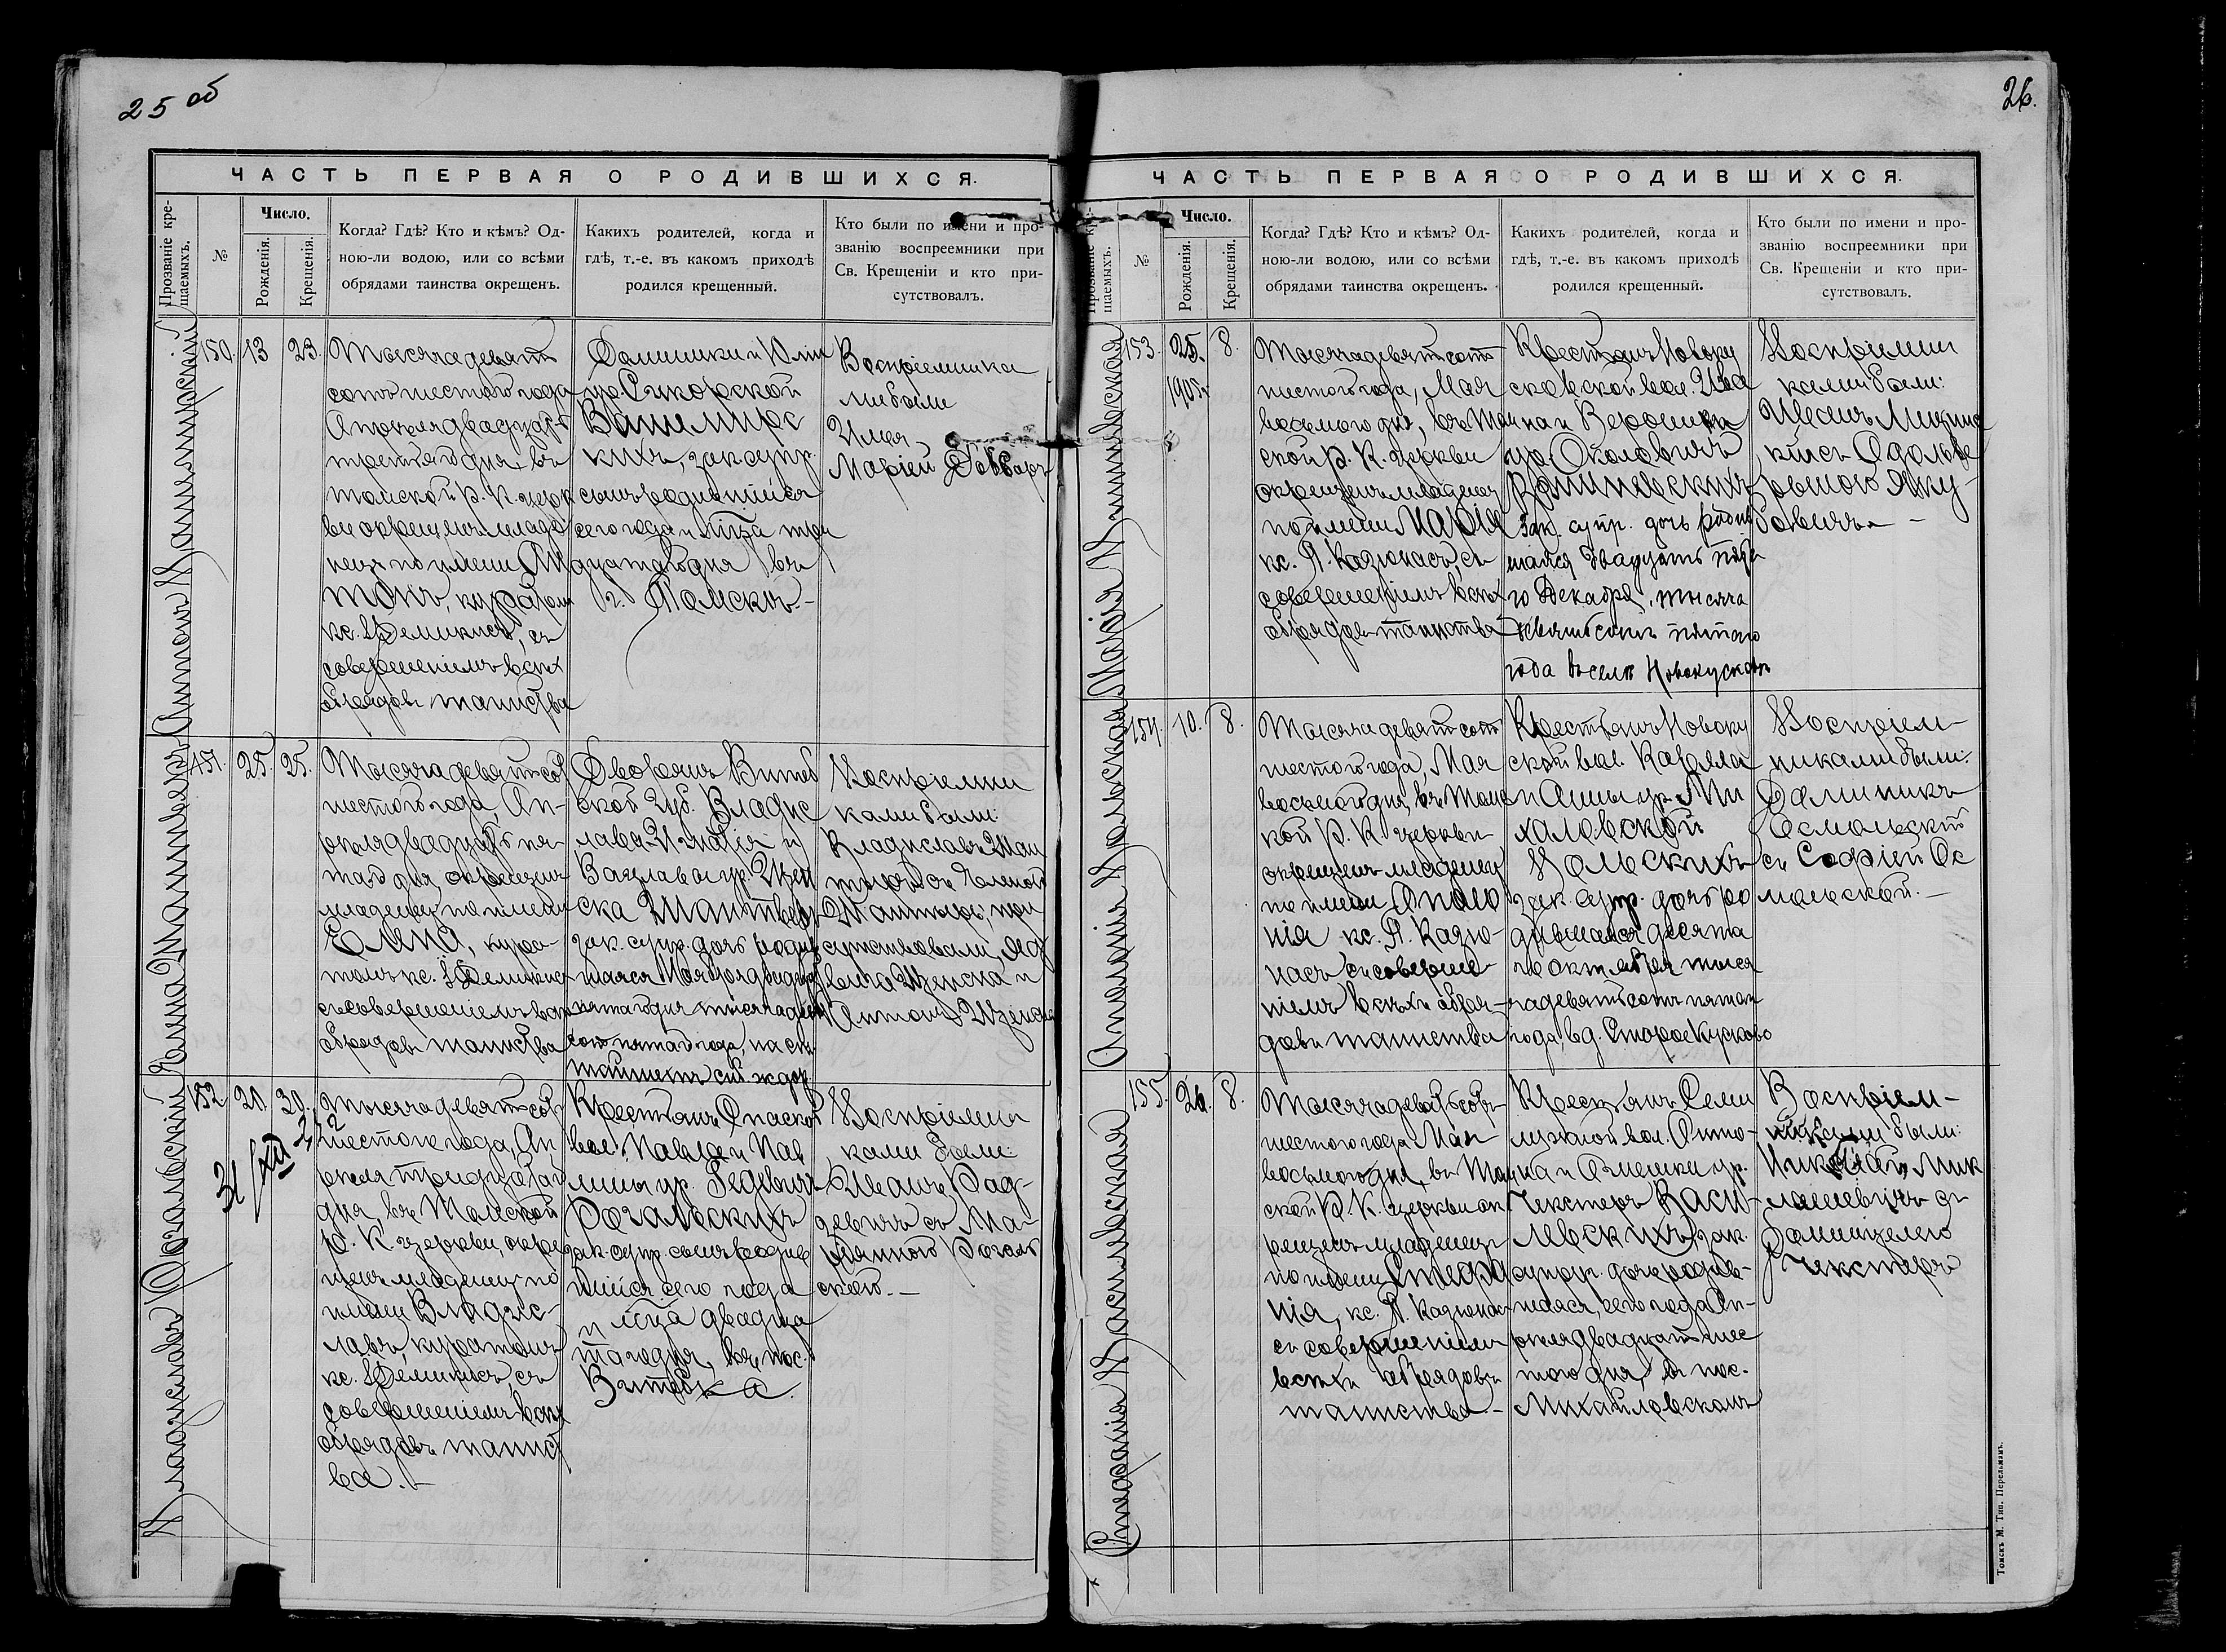 25 об
ЧАСТЬ ПЕРВАЯ О РОДИВШИХСЯ.
Прозваніе кре-
щаемыхъ.
№
Число.
Рожденія.
Крещенія.
Когда? Гдѣ? Кто и кѣмъ? Од-
ною-ли водою, или со всѣми
обрядами таинства окрещенъ.
Какихъ родителей, когда и
гдѣ, т.-е. въ какомъ приходѣ
родился крещенный.
Кто были по имени и про-
званію воспреемники при
Св. Крещеніи и кто при-
сутствовалъ.
Антонъ
150. 13 23.
Тысяча девять
сотъ шестого года
Апрѣля двадцать
третьяго дня, въ
Томской Р. К. церк
ви окрещенъ младе
нецъ по имени Ан
тонъ, куратом
кс. Демикис, съ
совершеніемъ всѣх
обрядовъ таинства
Доминика и Юліи
ур. Сикорской
закон. супр.
сынъ родившійся
сего года и м-ца три
надцатаго дня въ
г. Томскѣ.-
Воспріемника
ми были
Илья
Маріей
Елена
151. 25. 25.
Тысяча девятьсот
шестого года, Ап-
рѣля двадцать пя
таго дня, окрещенъ
младенецъ по имени
Елена, кура-
томъ кс. Демикис
съ совершеніемъ всѣх
обрядовъ таинства
Дворянъ Витеб
ской губ. Владис
лава-Игнатія и
зак. супр. дочь родив
шаяся Ноября двадцать
пятаго дня тысяча девят
сотъ пятаго года, на ст.
Воспріемни
ками были:
Владиславъ
съ Еленой
при
сутствовали
Владиславъ Рогальскій
152 20. 30.
Тысяча девятьсот
шестого года, Ап
рѣля тридцатаго
дня, въ Томской
Р. К. церкви, окре
щенъ младенецъ по
имени Владис-
лавъ, куратомъ
кс. Демикис, съ
совершеніемъ всѣх
обрядовъ таинст
ва.-
Крестьянъ Спаской
вол. Павла и Пав
лины ур.
Рогальскихъ
зак. супр. сынъ родив
шійся сего года
и м-ца двадца
таго дня, въ пос.
Витебка.
Воспріемни
ками были:
Иванъ
съ Ма-
ріанною Рогаль
ской.-
26.
ЧАСТЬ ПЕРВАЯ О РОДИВШИХСЯ.
щаемыхъ.
№
Число.
Рожденія.
Крещенія.
Когда? Гдѣ? Кто и кѣмъ? Од-
ною-ли водою, или со всѣми
обрядами таинства окрещенъ.
Какихъ родителей, когда и
гдѣ, т.-е. въ какомъ приходѣ
родился крещенный.
Кто были по имени и про-
званію воспреемники при
Св. Крещеніи и кто при-
сутствовалъ.
Марія
153. 25. 8.
1905г.
Тысяча девятьсотъ
шестого года, Мая
восьмого дня, въ Том
ской Р. К. церкви
окрещенъ младенец
по имени Марія
кс. П. Казюнасъ, съ
совершеніемъ всѣх
обрядовъ таинства
Крестьянъ Новоку
сковской вол. Ива
на и Вероники
ур. Околовичъ
зак. супр. дочь родив
шаяся двадцать пята
го Декабря, тысяча
девятьсотъ пятаго
года въ селѣ Новокусковѣ
Воспріемни
ками были:
Иванъ
съ
Яку-
бовичъ. -
Аполонія Вольская
154. 10. 8.
Тысяча девятьсотъ
шестого года, Мая
восьмого дня, въ Томс
кой Р. К. церкви
окрещенъ младенец
по имени Аполо
нія кс. П. Казю-
насъ съ соверше-
ніемъ всѣхъ обря-
довъ таинства
Крестьянъ Новоку
ской вол. Карла
и Анны ур. Ми
халовской
Вольскихъ
зак. супр. дочь ро
дившаяся десята
го октября тыся
ча девятьсотъ пятаго
года, въ д. Старое Кусково
Воспріем-
никами были:
Доминикъ
Осмольскій
съ Софіей Ос
мольской.-
Стефанія Василевская
155. 26. 8.
Тысяча девятьсотъ
шестого года Мая
восьмого дня, въ Том
ской Р. К. церкви ок
рещенъ младенецъ
по имени Стефа
нія, кс. П. Казюнас
съ совершеніемъ
всѣхъ обрядовъ
таинства.-
Крестьянъ Семи
лужной вол. Анто-
на и ур.
Чекстеръ Васи-
левскихъ, зак.
супр. дочь родив-
шаяся, сего года Ап-
рѣля двадцать шес
того дня, въ пос.
Михайловскомъ
Воспріем-
никами были:
Николай Мик
лашевичъ съ
Доминцелею
Чекстеръ
Томскъ М. Тип. Перельманъ.